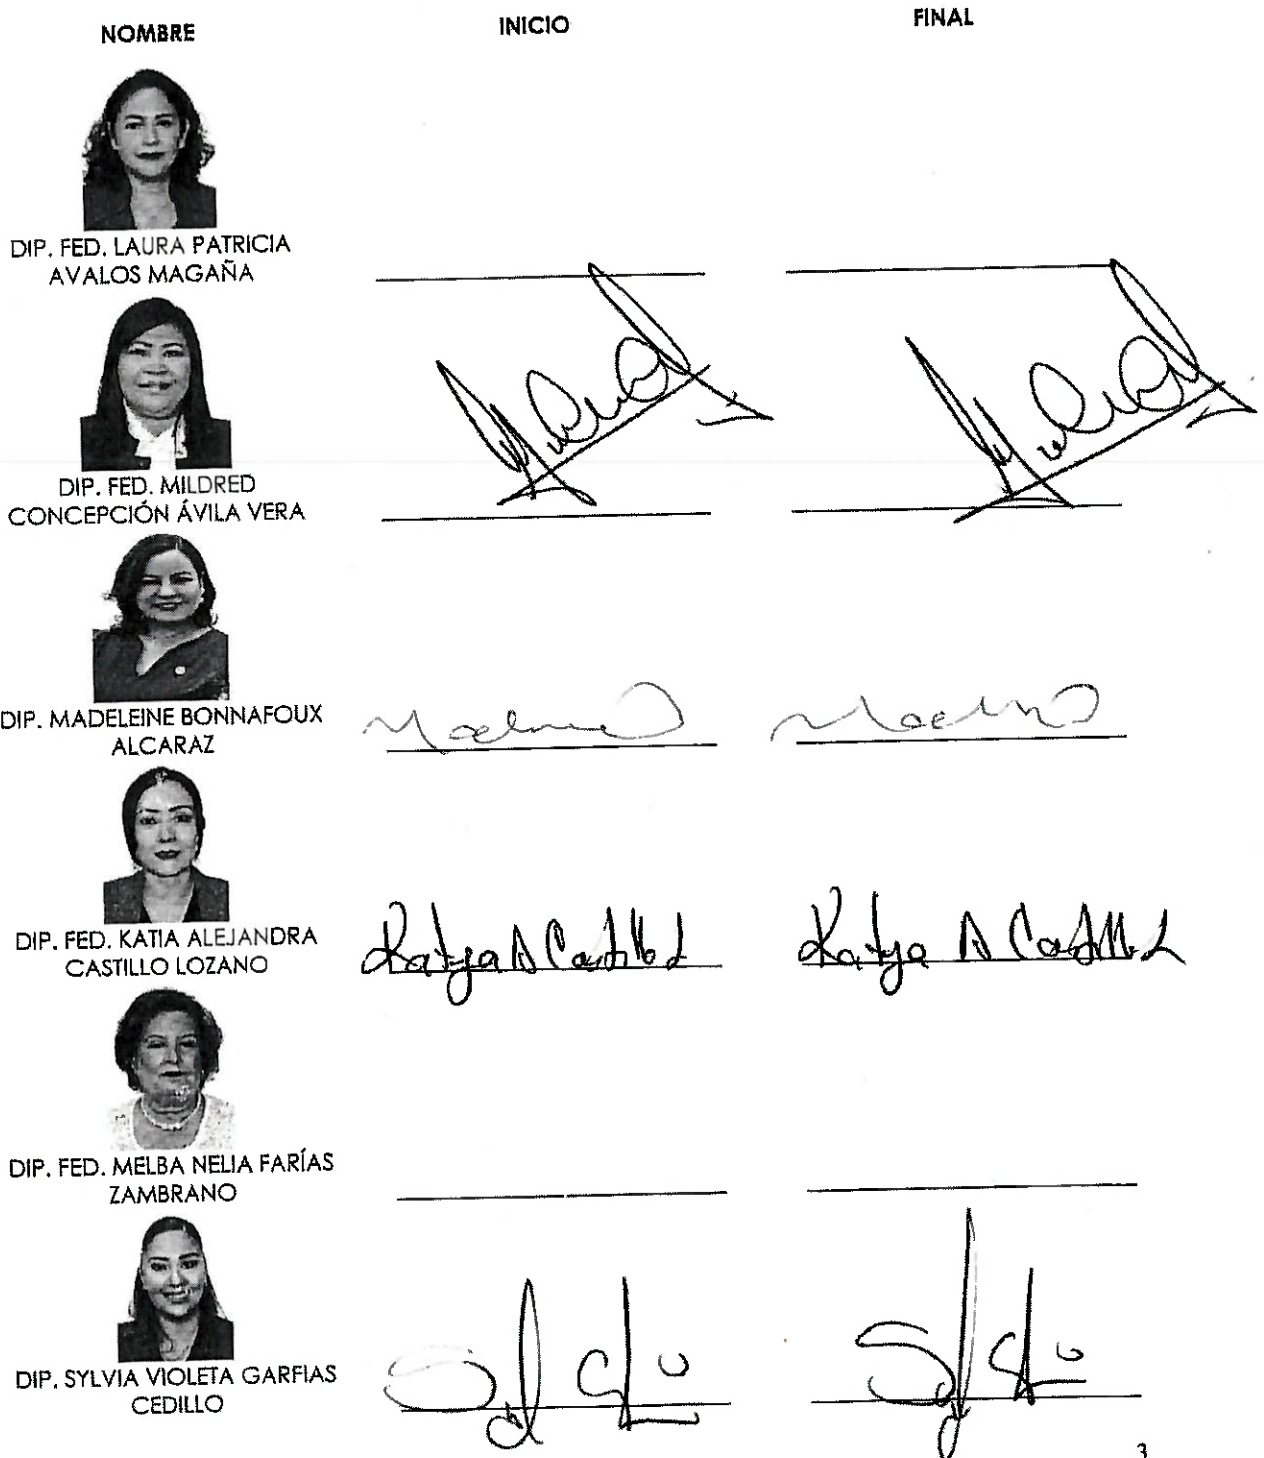 NOMBRE INICIO FINAL
DIP. FED. LAURA PATRICIA
AVALOS MAGAÑA
DIP. FED. MILDRED
CONCEPCIÓN ÁVILA VERA
DIP. MADELEINE BONNAFOUX
ALCARAZ
DIP. FED. KATIA ALEJANDRA
CASTILLO LOZANO
Katya A Castillo L Katya A Castillo L
DIP. FED. MELBA NELIA FARÍAS
ZAMBRANO
DIP. SYLVIA VIOLETA GARFIAS
CEDILLO
3